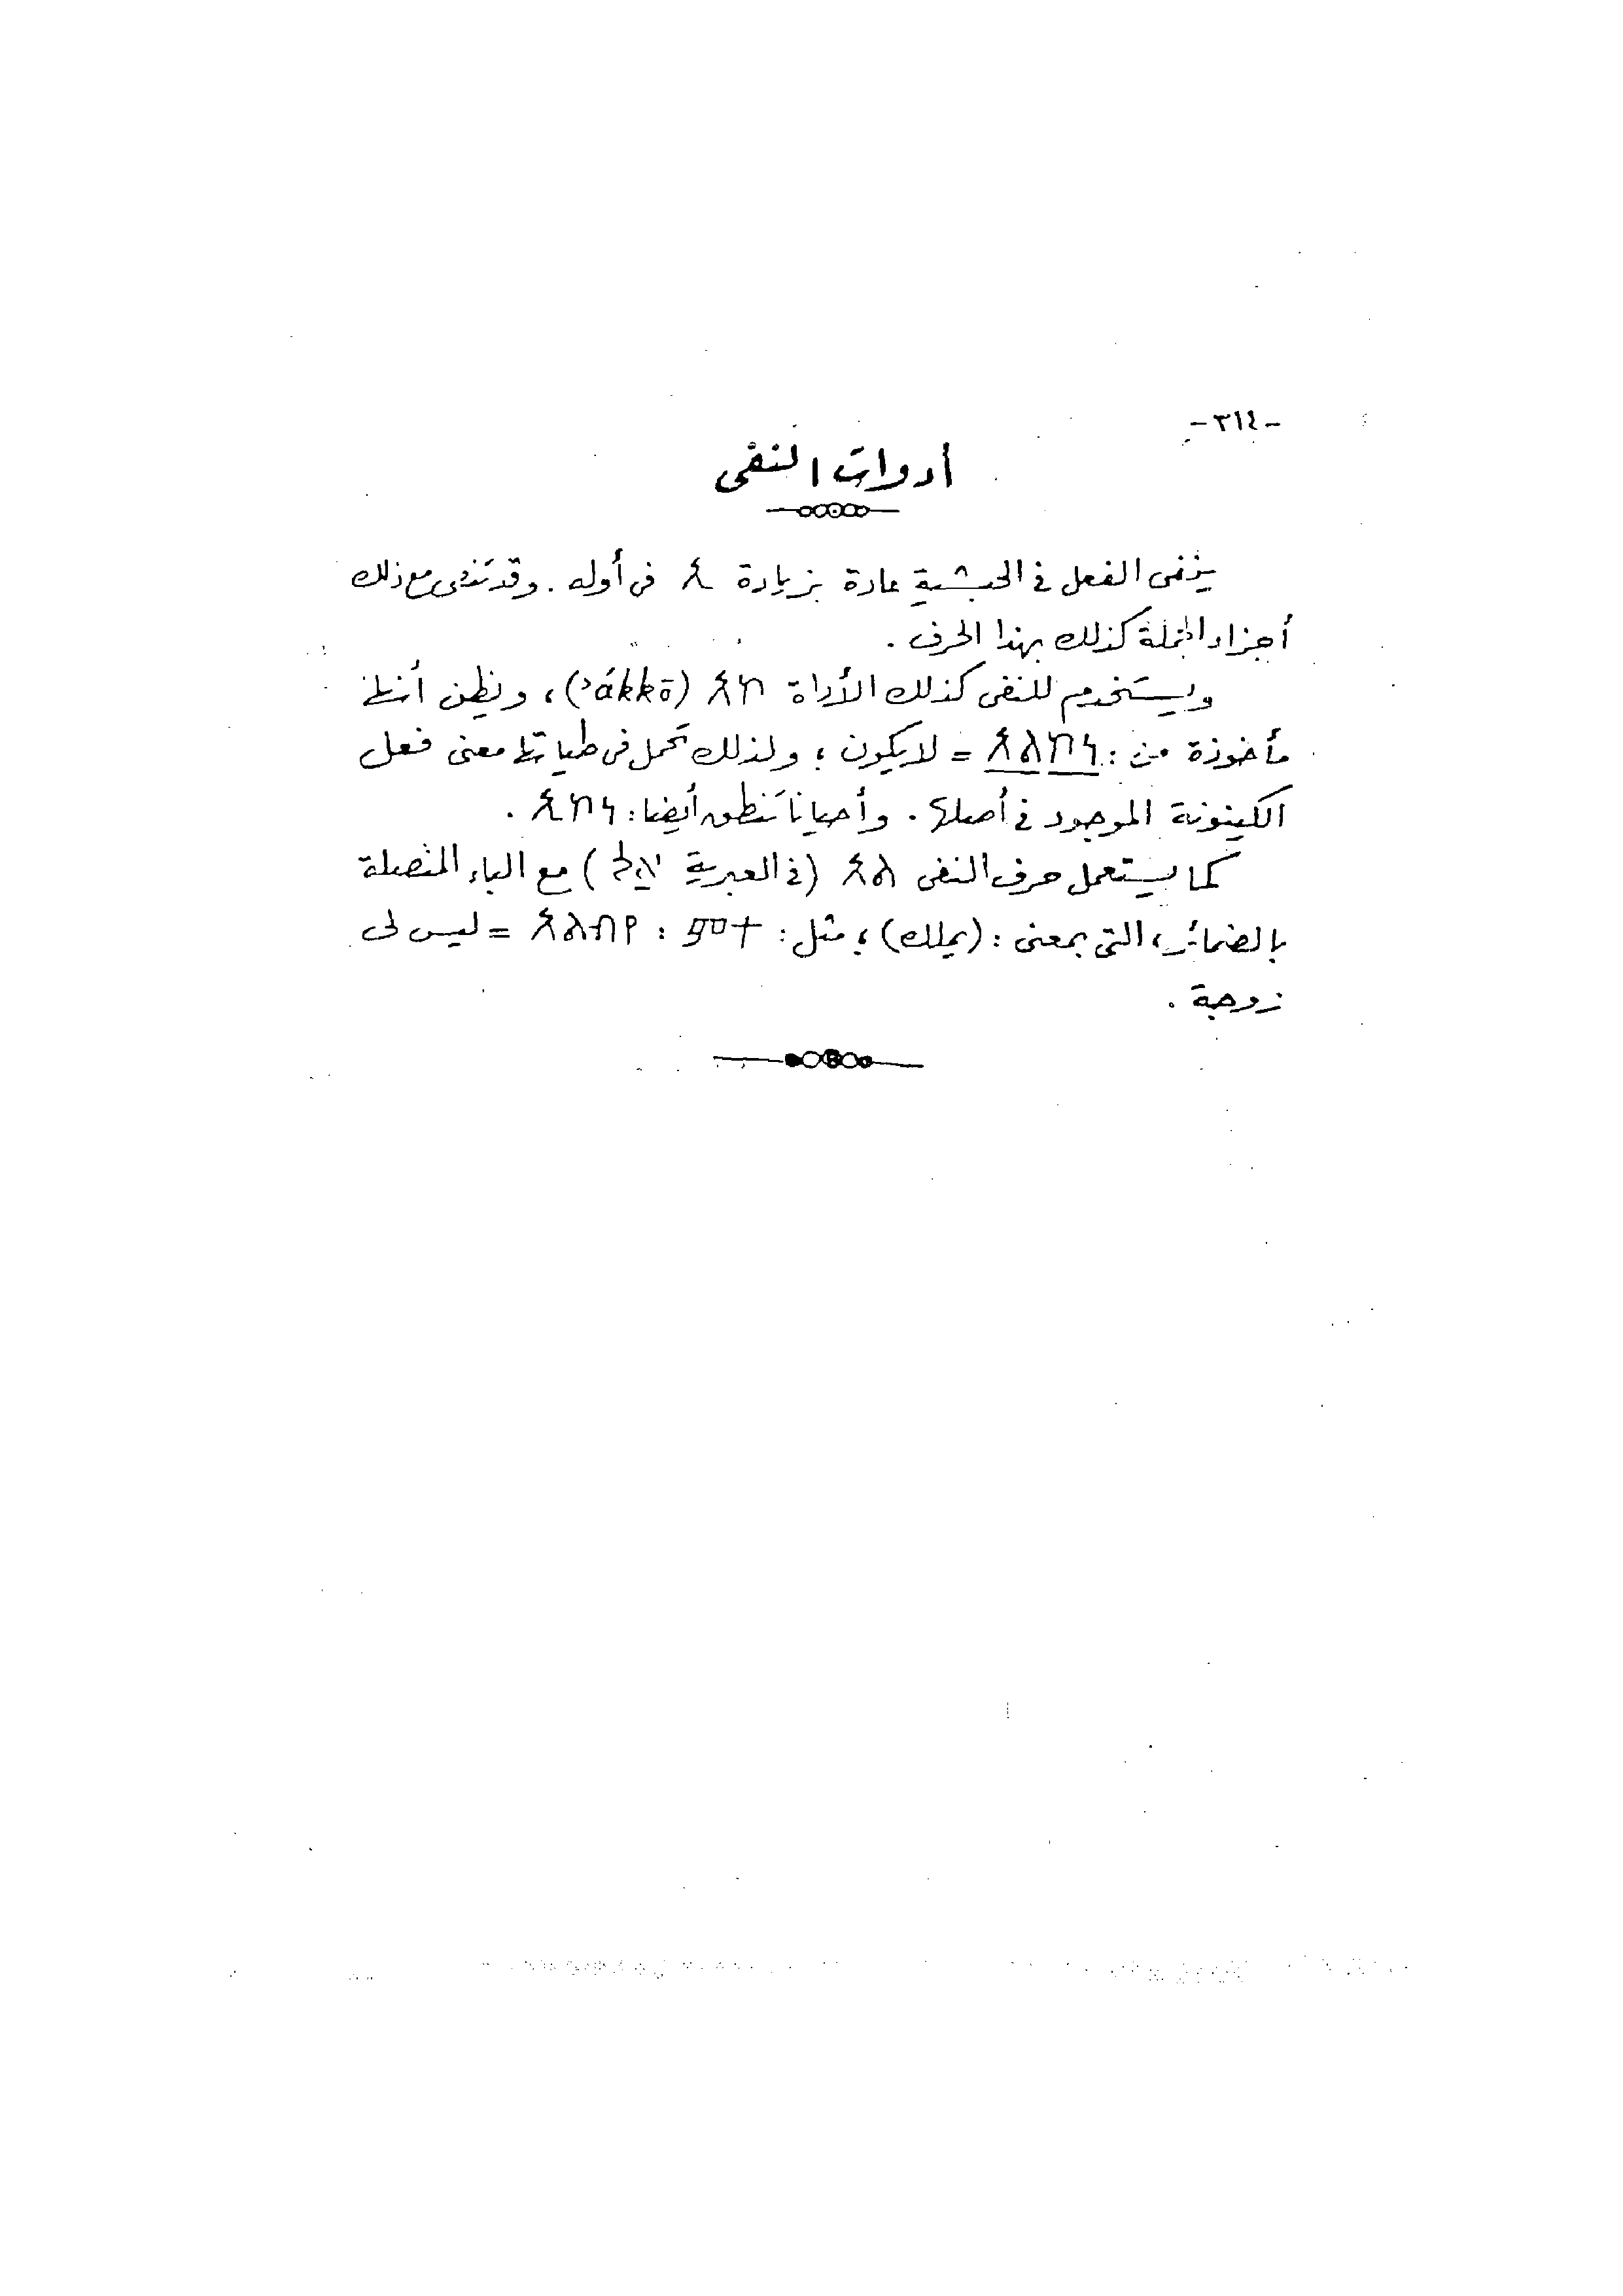 -٣١٤-
أدوات النفى
ينفى الفعل فى الحبشية عادة بزيادة ኢ فى أوله . وقد تنفى مع ذلك
أجزاء الجملة كذلك بهذا الحرف .
ويستخدم للنفى كذلك الأداة አኮ (ʾákkō) ، ونظن أنها
مأخوذة من : አልኮነ = لايكون ؛ ولذلك تحمل فى طياتها معنى فعل
الكينونة الموجود فى أصلها . وأحيانا تنطق أيضا :
كما يستعمل حرف النفى አል (فى العبرية אַל) مع الباء المتصلة
بالضمائر ، التى بمعنى : (يملك) ؛ مثل : አልብየ : ምት = ليس لى
زوجة .